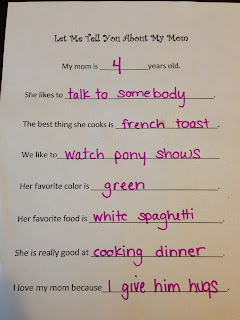 Let Me Tell You About My Mom
My mom is 4 years old.
She likes to talk to somebody.
The best thing she cooks is french toast.
We like to watch pony shows.
Her favorite color is green.
Her favorite food is white spaghetti.
She is really good at cooking dinner.
I love my mom because I give him hugs.